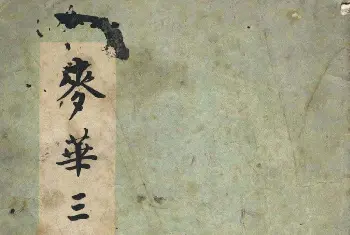 麥華三